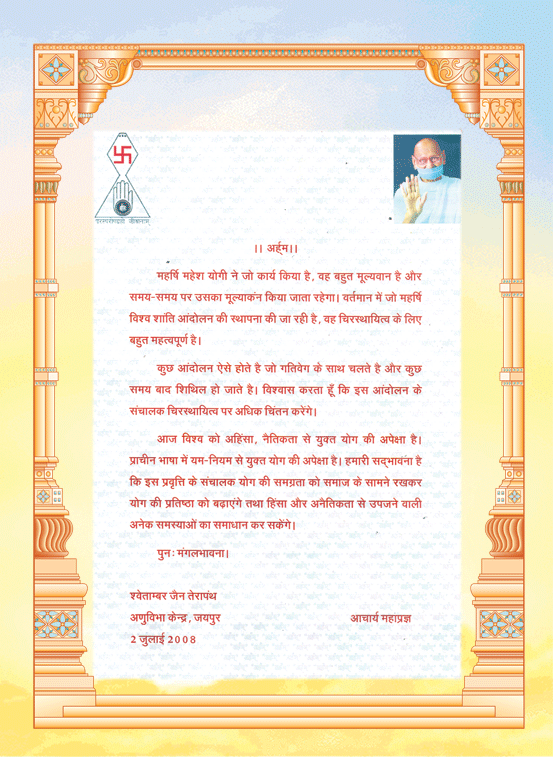 परस्परोपग्रहो जीवानाम्
।। अर्हम।।
महर्षि महेश योगी ने जो कार्य किया है, वह बहुत मूल्यवान है और
समय-समय पर उसका मूल्याकंन किया जाता रहेगा। वर्तमान में जो महर्षि
विश्व शांति आंदोलन की स्थापना की जा रही है, वह चिरस्थायित्व के लिए
बहुत महत्वपूर्ण है।
कुछ आंदोलन ऐसे होते है जो गतिवेग के साथ चलते है और कुछ
समय बाद शिथिल हो जाते है। विश्वास करता हूँ कि इस आंदोलन के
संचालक चिरस्थायित्व पर अधिक चिंतन करेंगे।
आज विश्व को अहिंसा, नैतिकता से युक्त योग की अपेक्षा है।
प्राचीन भाषा में यम-नियम से युक्त योग की अपेक्षा है। हमारी सद्भावना है
कि इस प्रवृत्ति के संचालक योग की समग्रता को समाज के सामने रखकर
योग की प्रतिष्ठा को बढ़ाएंगे तथा हिंसा और अनैतिकता से उपजने वाली
अनेक समस्याओं का समाधान कर सकेंगे।
पुनः मंगलभावना।
श्वेताम्बर जैन तेरापंथ
अणुविभा केन्द्र, जयपुर आचार्य महाप्रज्ञ
2 जुलाई 2008